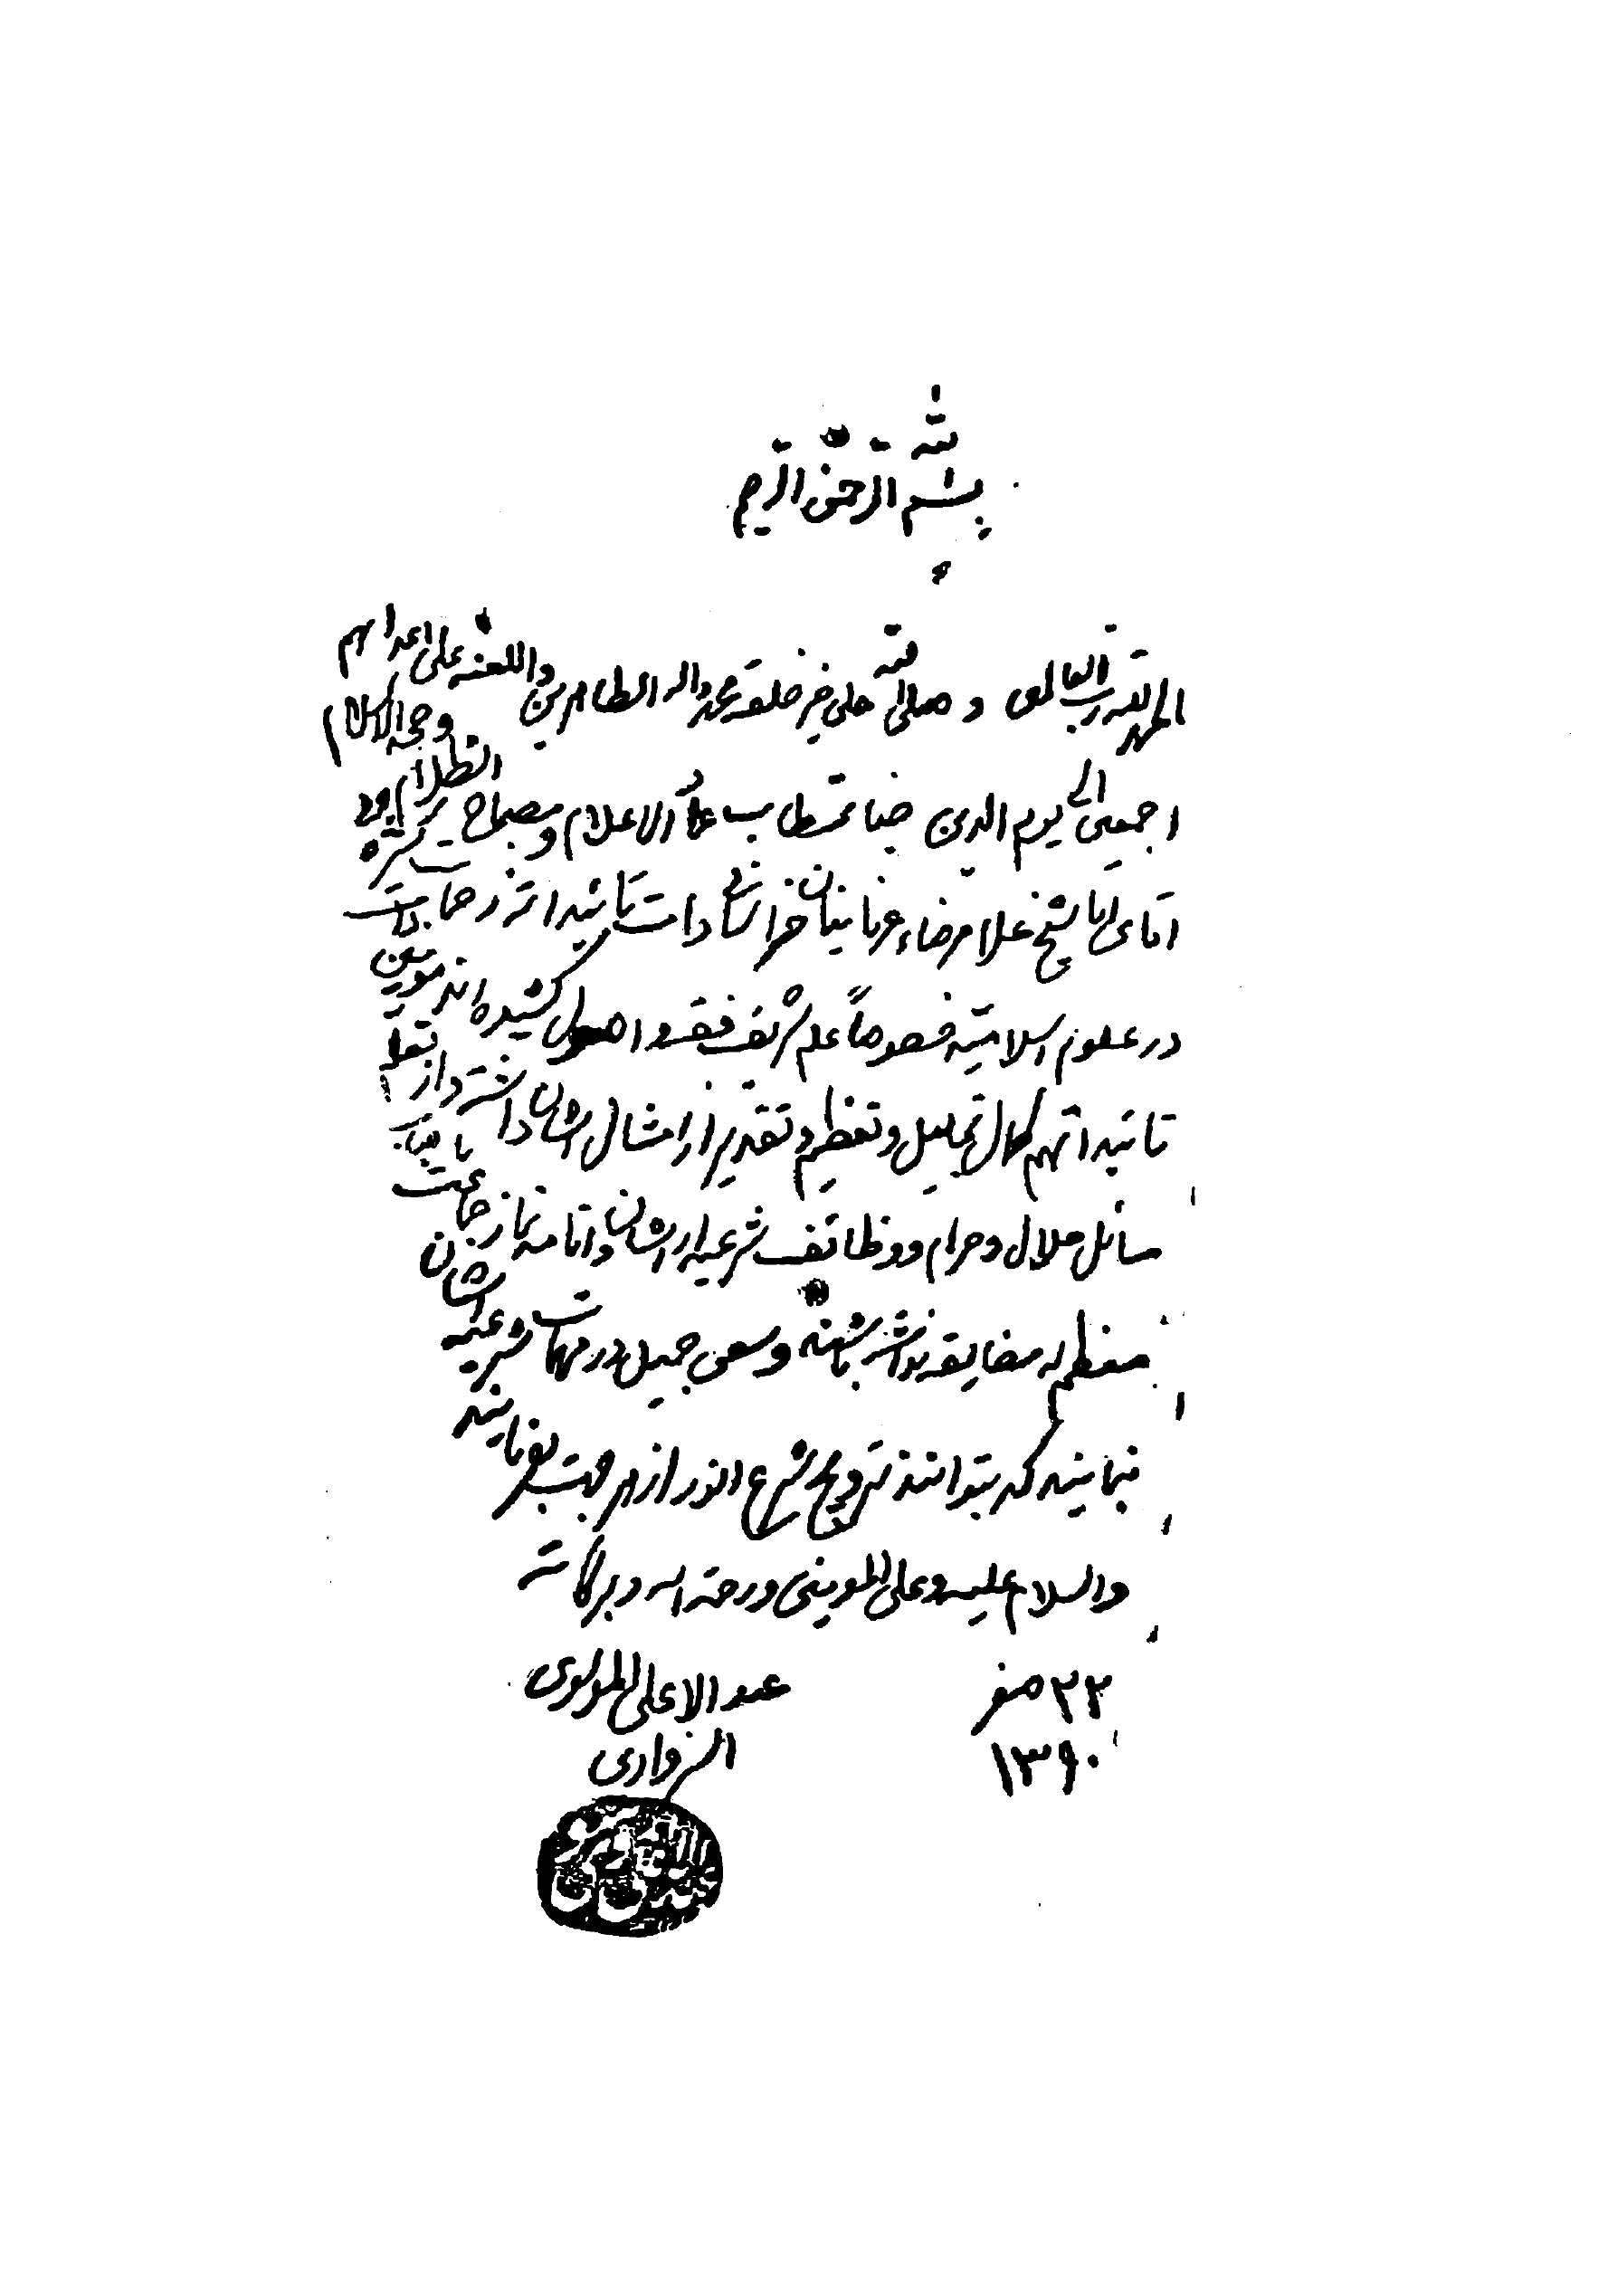 بسم الله الرحمن الرحیم
الحمد لله رب العالمین و صلی الله علی خیر خلقه محمد و اله الطاهرین و اللعنة علی اعدائهم
اجمعین الی یوم الدین جناب مستطاب عماد الاعلام و مصباح الظلام و حجة الاسلام
اقای اقا شیخ غلامرضا عرفانیان خراسانی دامت تائیداته زحمات
در علوم اسلامیه خصوصاً علم شریف فقه و اصول کشیده اند مومنین
تائیداتهم کمال تجلیل و تعظیم و تقدیر از امثال ایشان داشته و از تعلم
مسائل حلال و حرام و وظائف شرعیه از ایشان و اقامه نماز جماعت با
معظم له مضایقه نداشته باشند و سعی جمیل در مهمات شرعیه ایشان
بنمایند که بتوانند ترویج شرع انور از هر جهت بفرمایند
والسلام علیه و علی المومنین و رحمة الله و برکاته
۲۲ صفر عبد الاعلی الموسوی
۱۳۹۰ السبزواری